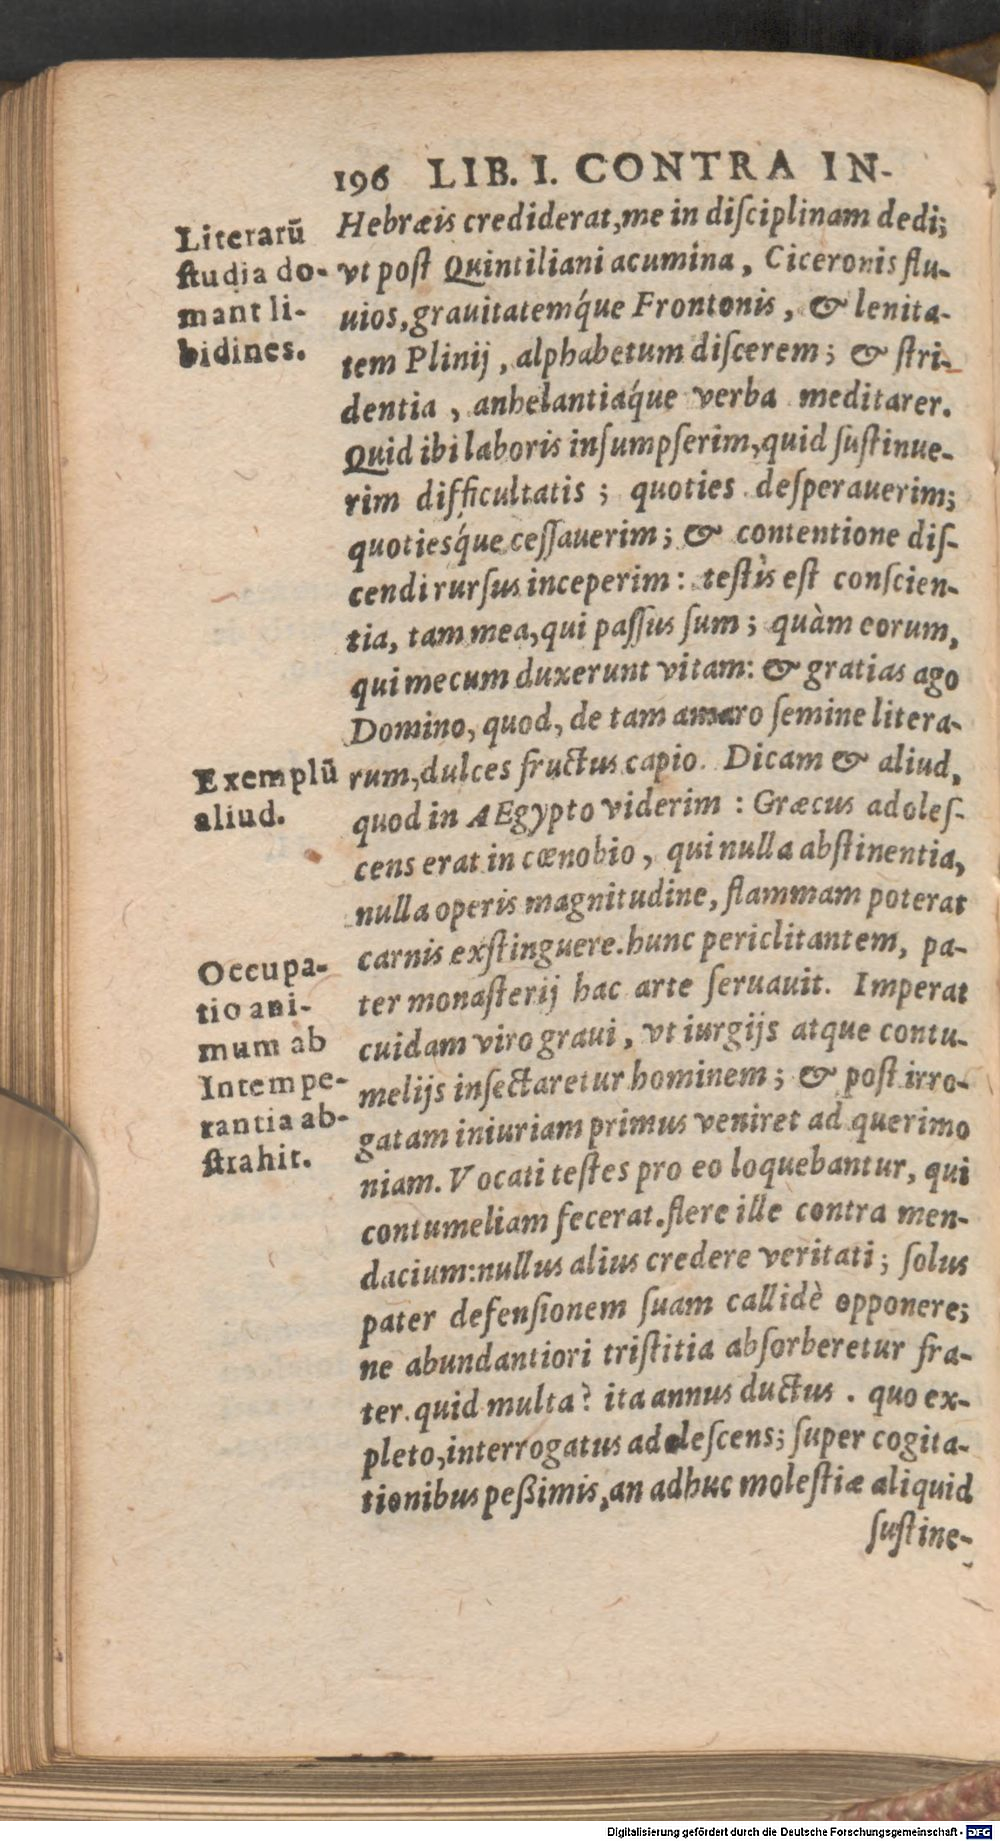 196 LIB. I. CONTRA IN-
Literarū
ſtudia do-
mant li-
bidines.
Hebræis crediderat,me in diſciplinam dedi;
vt poſt Quintiliani acumina, Ciceronis flu-
uios,grauitatemq́ue Frontonis, & lenita-
tem Plinij, alphabetum diſcerem; & ſtri-
dentia, anhelantiaq́ue verba meditarer.
Quid ibi laboris inſumpſerim,quid ſuſtinue-
rim difficultatis; quoties deſperauerim;
quotieſq́ue ceſſauerim; & contentione diſ-
cendi rurſus inceperim: teſtis eſt conſcien-
tia, tam mea,qui paſſus ſum; quàm eorum,
qui mecum duxerunt vitam: & gratias ago
Domino, quod, de tam amaro ſemine litera-
Exemplū
aliud.
rum,dulces fructus capio. Dicam & aliud,
quod in AEgypto viderim: Græcus adoleſ-
cens erat in cœnobio, qui nulla abſtinentia,
nulla operis magnitudine, flammam poterat
carnis exſtinguere.hunc periclitantem, pa-
Occupa-
tio ani-
mum ab
Intempe-
rantia ab-
ſtrahit.
ter monaſterij hac arte ſeruauit. Imperat
cuidam viro graui, vt iurgijs atque contu-
melijs inſectaretur hominem; & poſt irro-
gatam iniuriam primus veniret ad querimo
niam. Vocati teſtes pro eo loquebantur, qui
contumeliam fecerat.flere ille contra men-
dacium:nullus alius credere veritati; ſolus
pater defenſionem ſuam callidè opponere;
ne abundantiori triſtitia abſorberetur fra-
ter.quid multa? ita annus ductus. quo ex-
pleto,interrogatus adoleſcens; ſuper cogita-
tionibus peßimis,an adhuc moleſtiæ aliquid
ſuſtine-
Digitalisierung gefördert durch die Deutsche Forschungsgemeinschaft - DFG